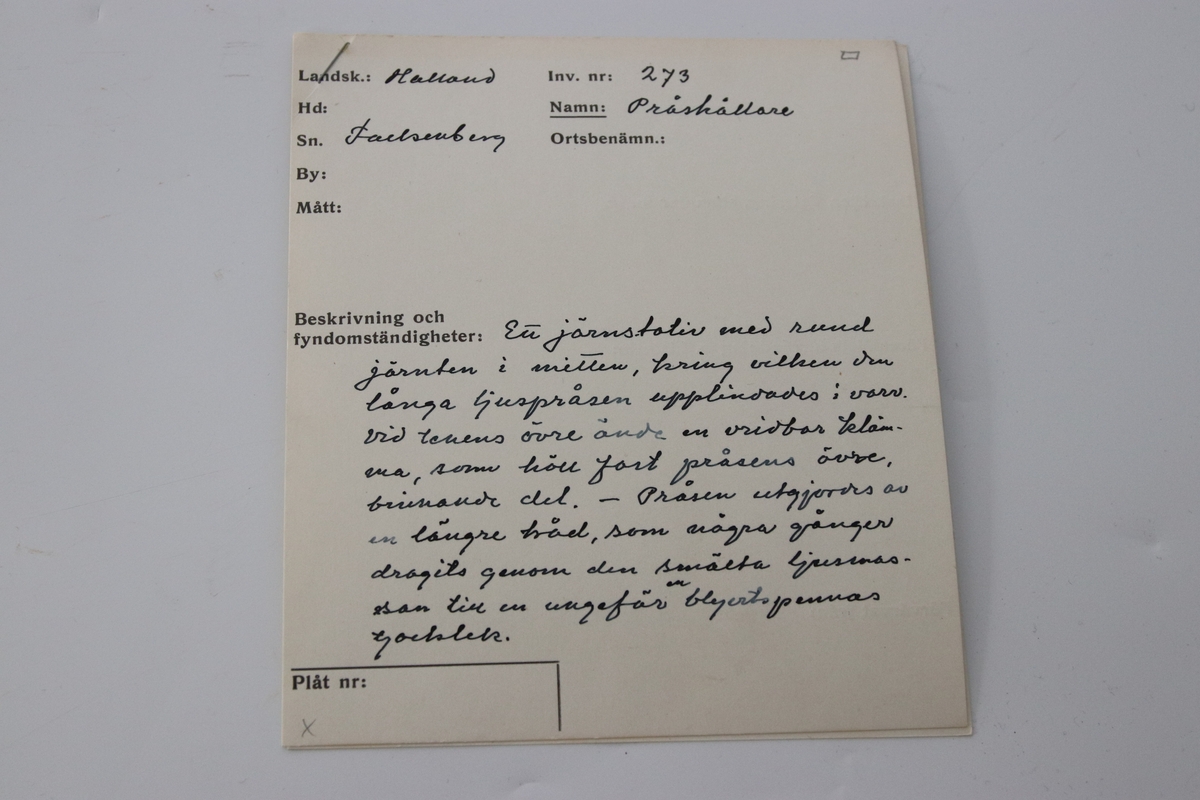 Landsk.: Halland Inv. nr: 273
Hd: Namn: Pråshållare
Sn. Falkenberg Ortsbenämn.:
By:
Mått:
Beskrivning och
fyndomständigheter: Ett järnstativ med rund
järnten i mitten, kring vilken den
långa ljuspråsen upplindades i varv.
Vid tenens övre ände en vridbar kläm-
ma, som höll fast pråsens övre,
brinnande del. – Pråsen utgjordes av
en längre tråd, som några gånger
dragits genom den smälta ljusmas-
san till en ungefär en blyertspennas
tjocklek.
Plåt nr:
X